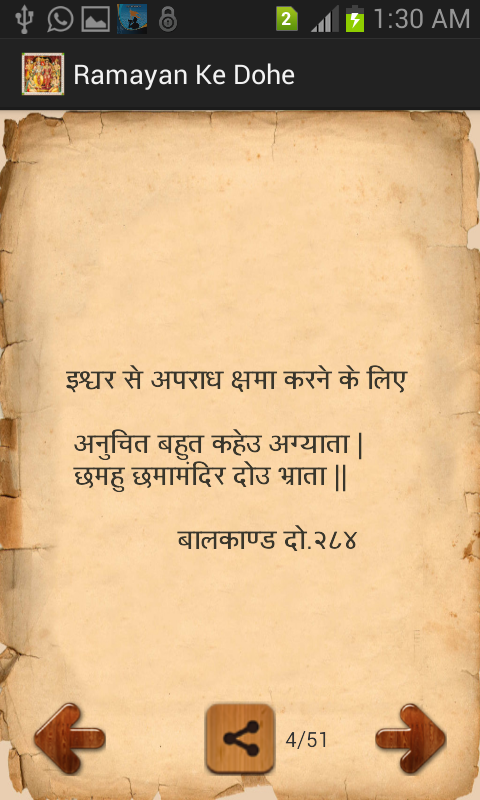 2
1:30 AM
Ramayan Ke Dohe
इश्वर से अपराध क्षमा करने के लिए
अनुचित बहुत कहेउ अग्याता |
छमहु छमामंदिर दोउ भ्राता ||
बालकाण्ड दो.२८४
4/51